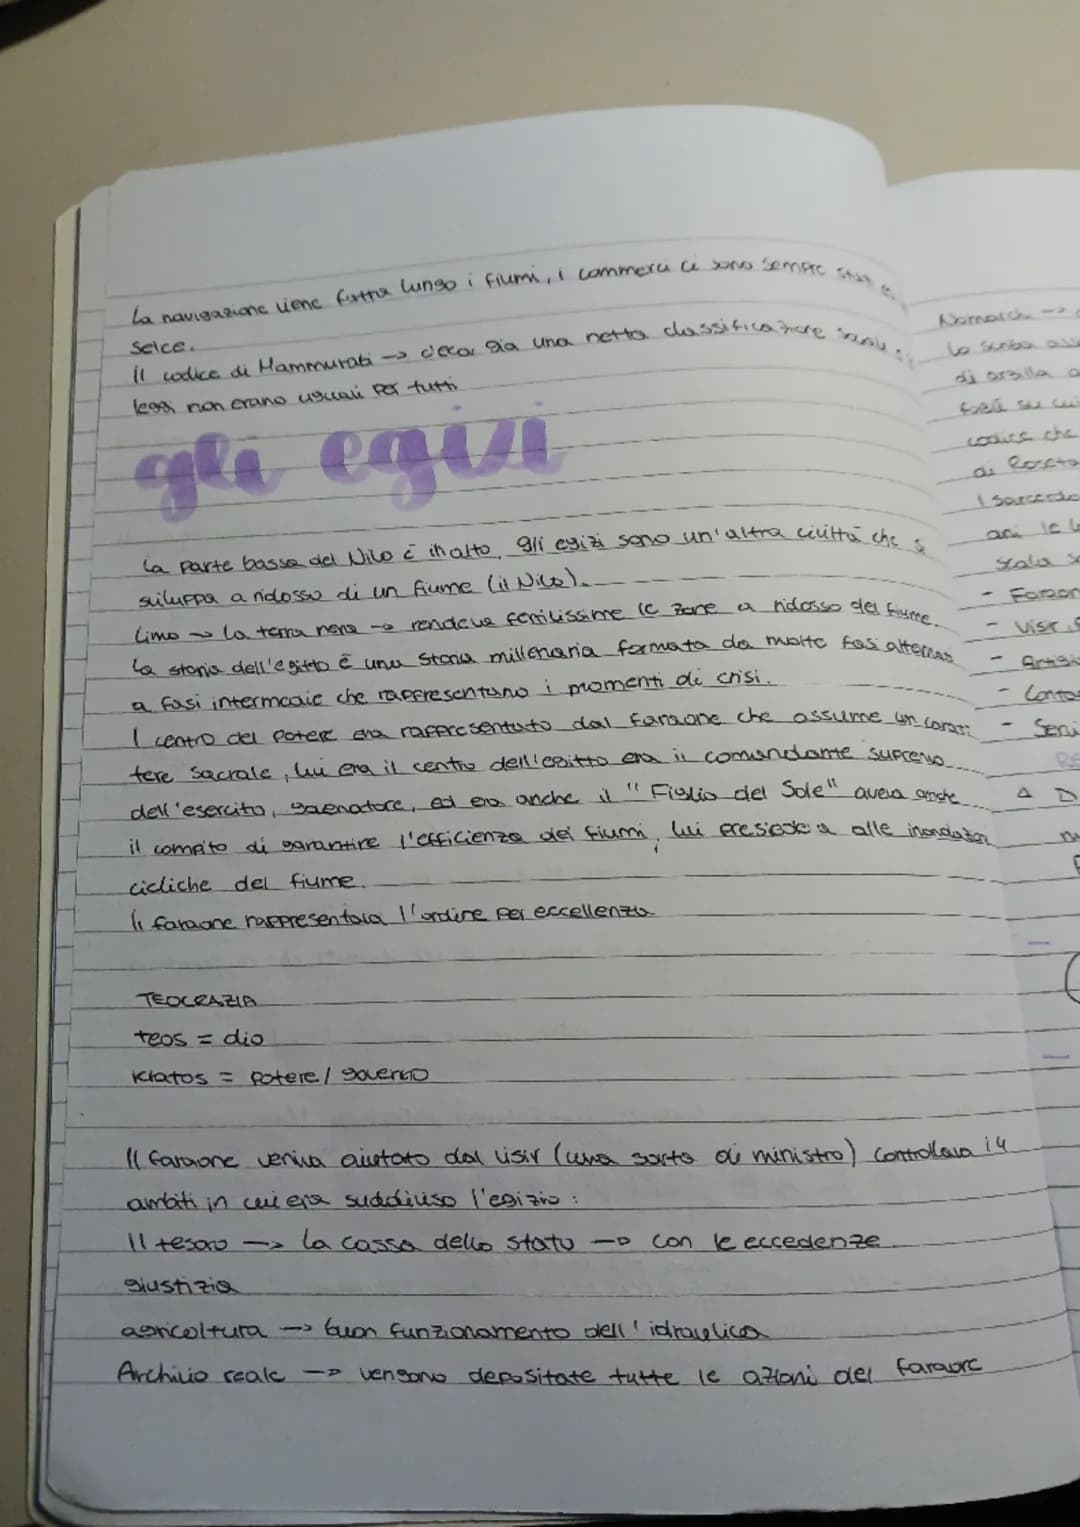 La navigazione viene fatta lungo i fiumi, i commerci ci sono sempre stati
selce.
Il codice di Hammurabi → c'era già una netta classificazione
leggi non erano uguali per tutti
gli egizi
La parte bassa del Nilo è in alto, gli egizi sono un'altra civiltà che si
sviluppa a ridosso di un fiume (il Nilo).
Limo → la terra nera → rendeva fertilissime le zone a ridosso del fiume.
La storia dell'egitto è una storia millenaria formata da molte fasi alternas
a fasi intermedie che rappresentano i momenti di crisi.
I centro del potere era rappresentato dal faraone che assume un carat
tere sacrale, lui era il centro dell'egitto era il comandante supremo
dell'esercito, governatore, ed era anche il "Figlio del Sole" aveva anche
il compito di garantire l'efficienza dei fiumi, lui presiedeva alle inondazion
cicliche del fiume.
Il faraone rappresentava l'ordine per eccellenza
TEOCRAZIA
teos = dio
Kratos = potere / governo
Il faraone veniva aiutato dal visir (una sorta di ministro) controllava i 4
ambiti in cui era suddiviso l'egizio :
Il tesoro → la cassa dello stato → con le eccedenze
giustizia
agricoltura → buon funzionamento dell' idraulica
Archivio reale → vengono depositate tutte le azioni del faraone
Nomarch →
lo scriba
di argilla
su cui
codice che
di Rosetta
I sacerdo
scala
- Faraon
- Visir
- Artigi
- Conta
- Servi
4 D